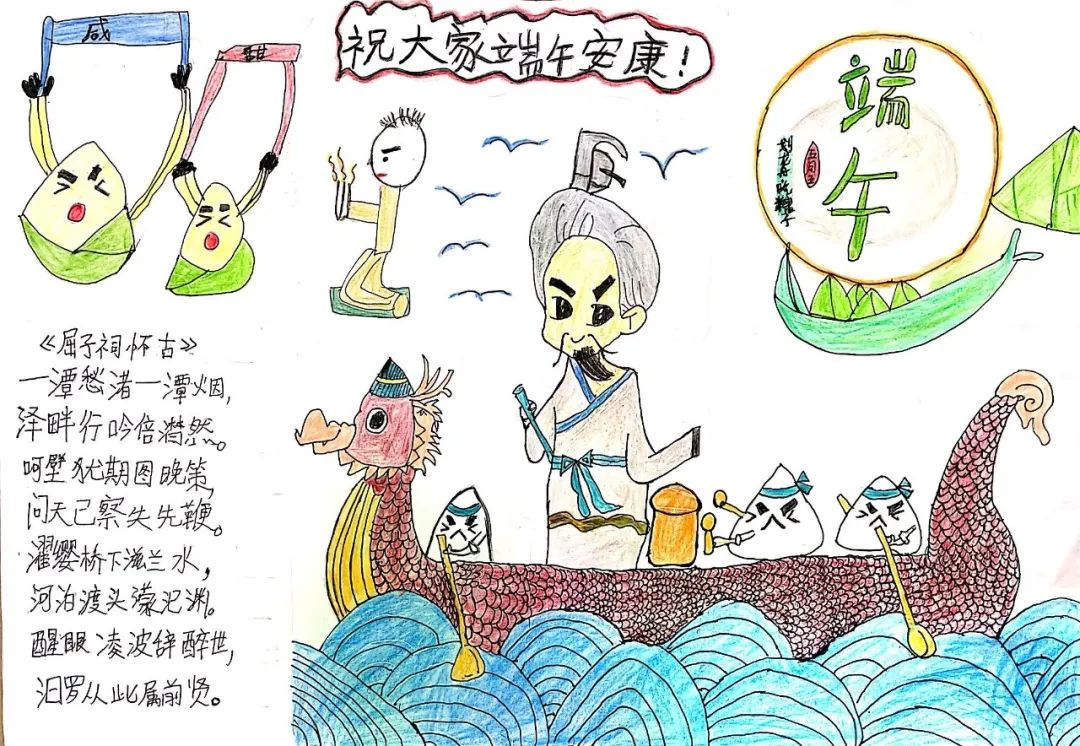 咸
甜
祝大家端午安康!
端午
五月五
划龙舟吃粽子
《屈子祠怀古》
一潭愁渚一潭烟,
泽畔行吟倍潸然。
呵壁犹期图晚策,
问天已察失先鞭。
濯缨桥下滋兰水,
河泊渡头濛汜渊。
醒眼凌波辞醉世,
汨罗从此属前贤。